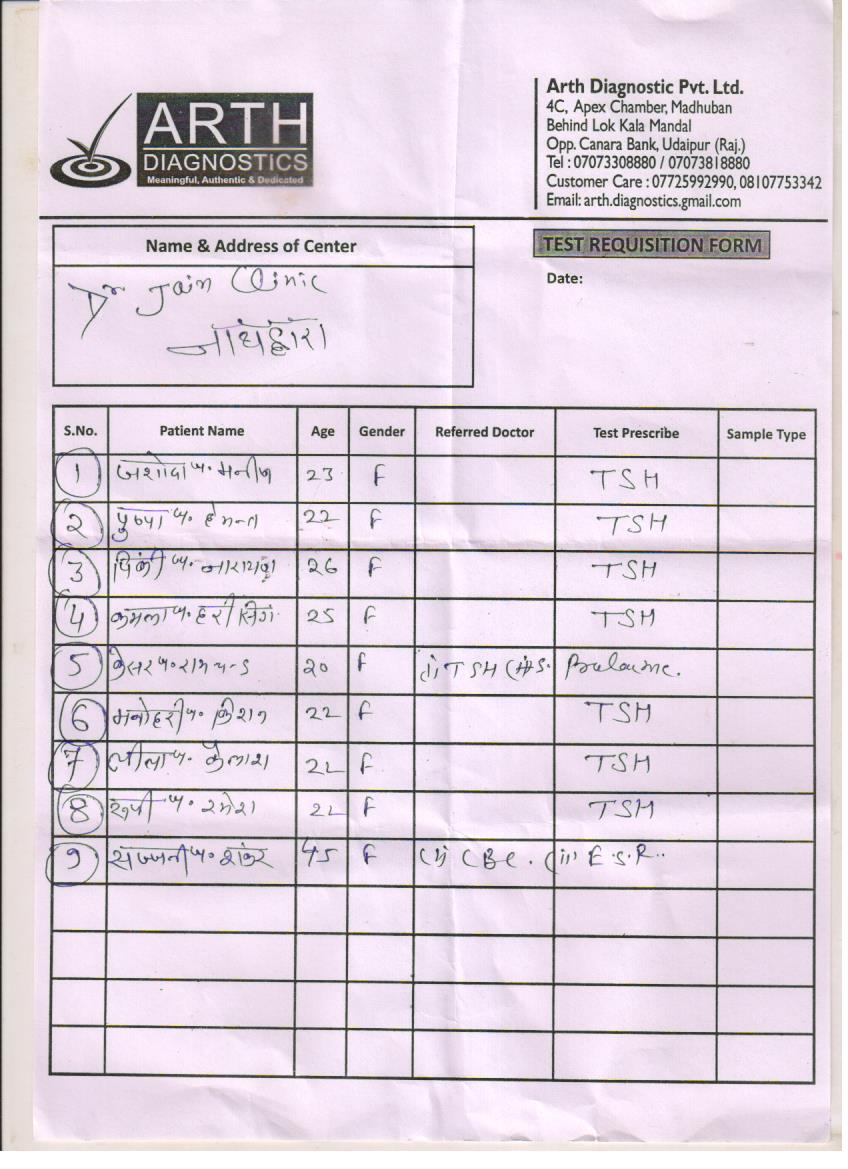 ARTH
DIAGNOSTICS
Meaningful, Authentic & Dedicated
Arth Diagnostic Pvt. Ltd.
4C, Apex Chamber, Madhuban
Behind Lok Kala Mandal
Opp. Canara Bank, Udaipur (Raj.)
Tel : 07073308880 / 07073818880
Customer Care : 07725992990, 08107753342
Email: arth.diagnostics.gmail.com
Name & Address of Center
TEST REQUISITION FORM
Date:
Dr Jain Clinic
नाथद्वारा
S.No. Patient Name Age Gender Referred Doctor Test Prescribe Sample Type
1 जशोदा w. मनोज 23 F TSH
2 पुष्पा w. हेमन्त 22 F TSH
3 पिंकी w. नारायण 26 F TSH
4 कमला w. हरी सिंग 25 F TSH
5 केसर w. रामचन्द 20 F (i) TSH (ii) S.
6 मनोहरी w. किशन 22 F TSH
7 लीला w. कैलाश 22 F TSH
8 रूपी w. रमेश 22 F TSH
9 सज्जनी w. शंकर 45 F (i) CBC. (ii) E.S.R..